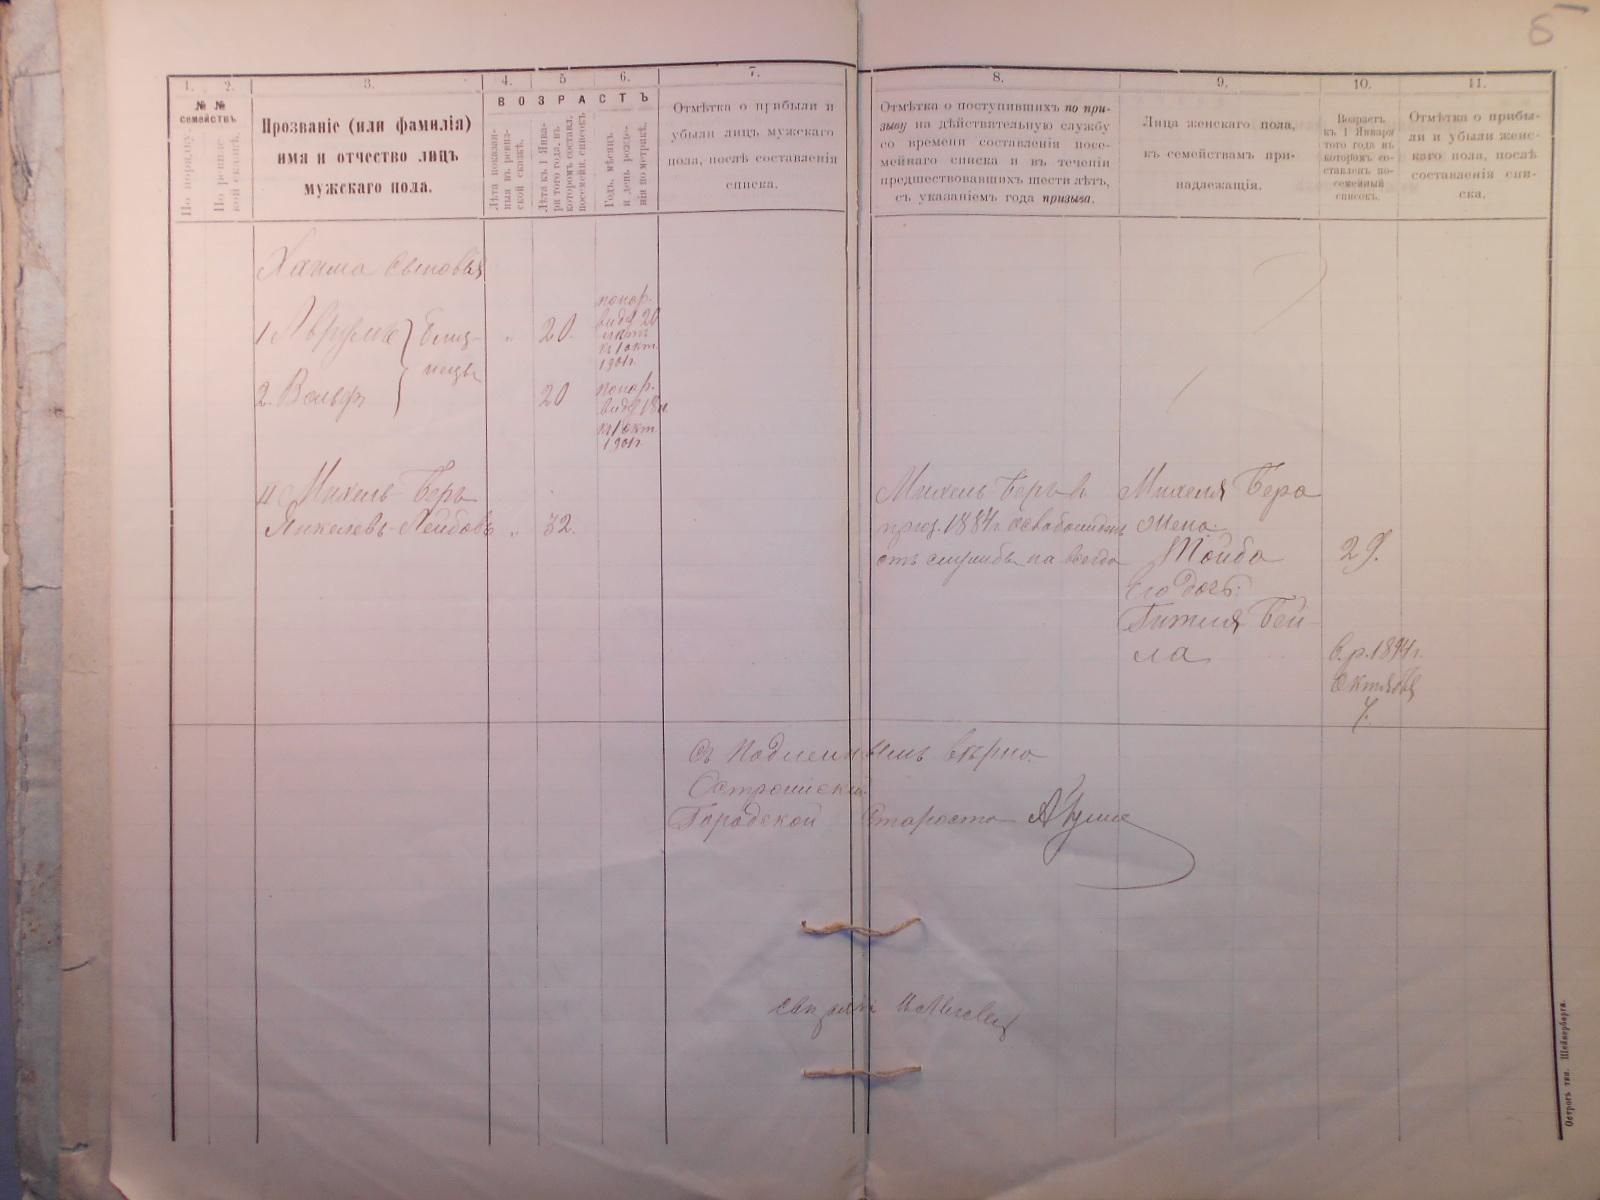 б
1. 2. 3. 4. 5 6. 7. 8. 9. 10. 11.
№ №
семействъ
По порядку.
По ревизской сказкѣ.
Прозваніе (или фамилія)
имя и отчество лицъ
мужскаго пола.
ВОЗРАСТЪ
Лѣта показан-
ныя въ ревиз-
ской сказкѣ.
Лѣта къ 1 Янва-
ря того года, въ
которомъ составл.
посемейн. списокъ
Годъ, мѣсяцъ
и день рожде-
нія по метрикѣ.
Отмѣтка о прибыли и
убыли лицъ мужскаго
пола, послѣ составленія
списка.
Отмѣтка о поступившихъ по при-
зыву на дѣйствительную службу
со времени составленія посе-
мейнаго списка и въ теченіи
предшествовавшихъ шести лѣтъ,
съ указаніемъ года призыва.
Лица женскаго пола,
къ семействамъ при-
надлежащія.
Возрастъ
къ 1 Января
того года въ
которомъ со-
ставленъ по-
семейный
списокъ.
Отмѣтка о прибы-
ли и убыли женс-
каго пола, послѣ
составленія спи-
ска.
Хаима сыновья
1 Аврумъ } близ-
нецы
20.
по нар.
виду 20
лѣтъ
къ 1 окт.
1901г.
2. Вольф
20
по нар.
виду 18 л
къ 1 окт.
1901г.
II Михель-Беръ
Янкелевъ-Лейбовъ „ 32.
Михель Беръ въ
приз. 1884г. освобожденъ
отъ службы на всегда
Михеля Бера
жена:
Тойба 29.
его дочь:
Гитля Бей-
ла
в. р. 1894г.
Октября
7.
Съ подлиннымъ вѣрно
Острожскій
Городской Староста
Острогъ тип. Шейнерберга.